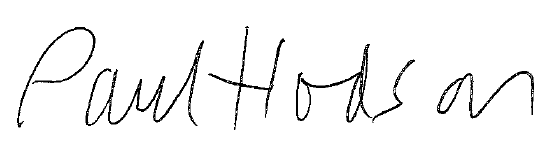 Paul Hodson